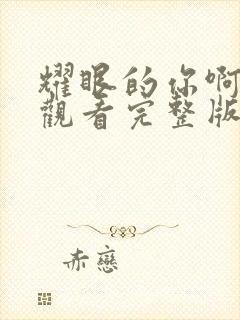 耀眼的你啊
觀看完整版
赤戀